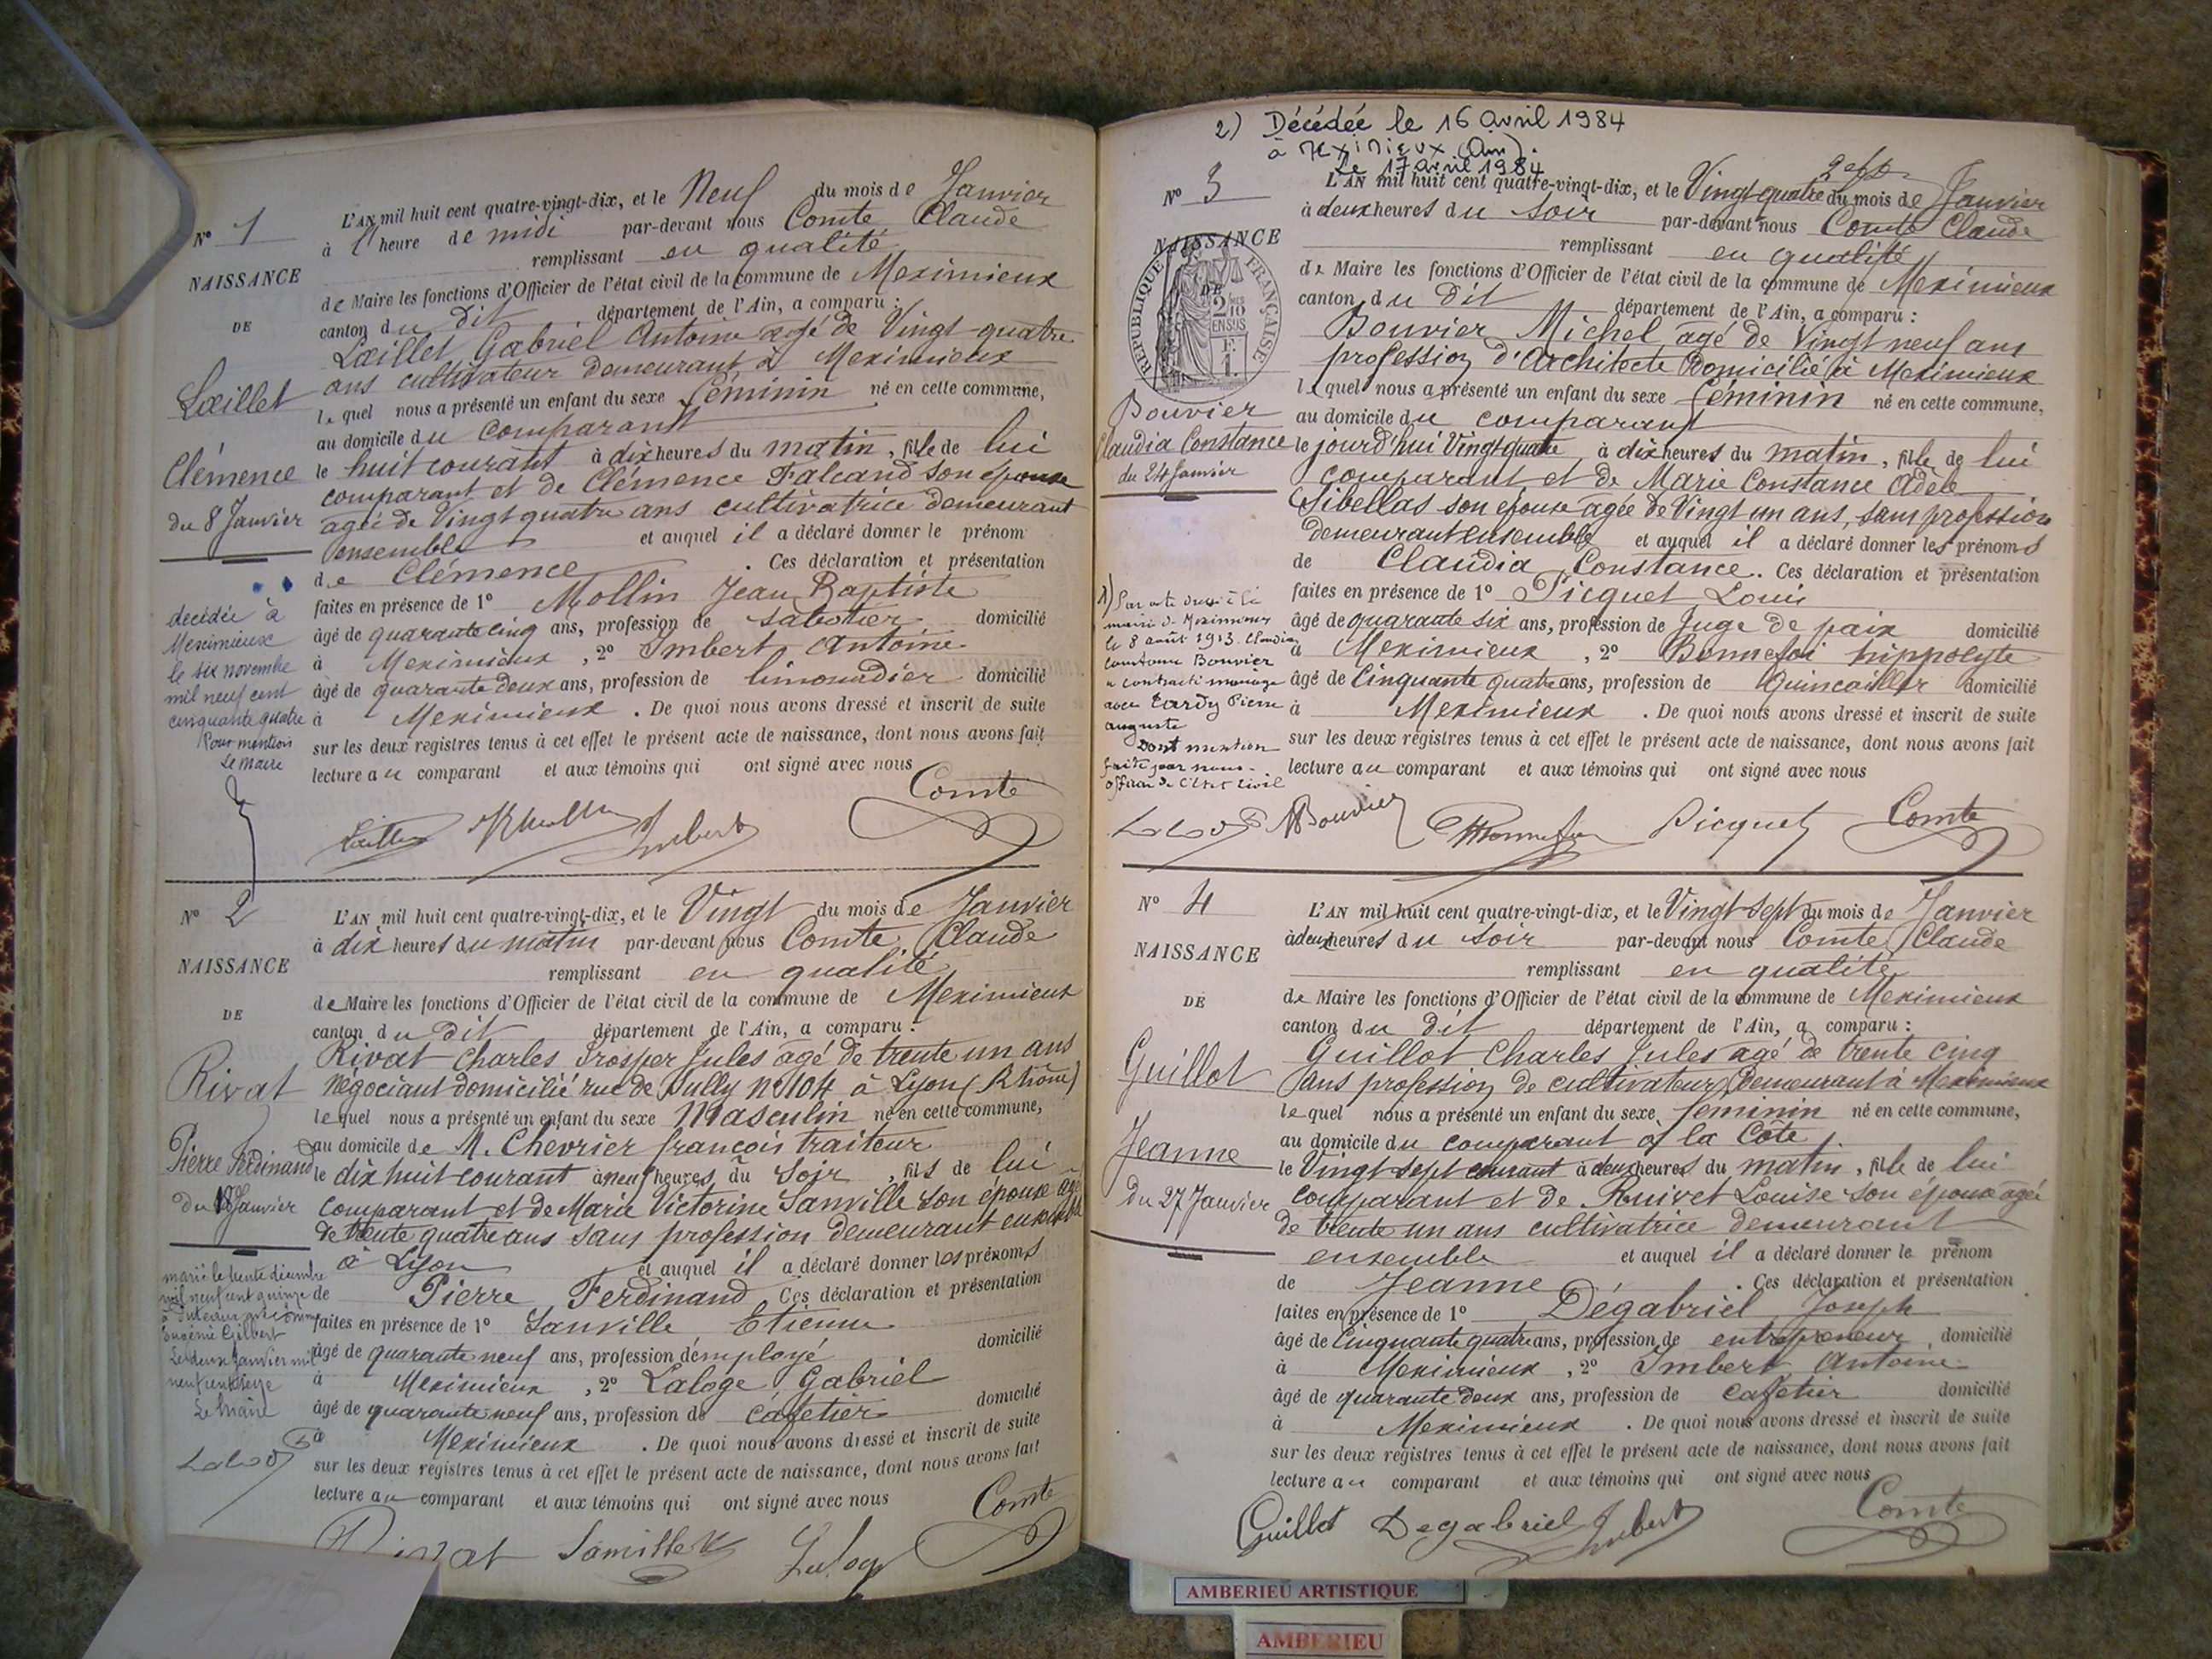 N° 1
NAISSANCE
DE
Lœillet
Clémence
du 8 Janvier
décédée à
Meximieux
le six novembre
mil neuf cent
cinquante quatre
Pour mention
Le Maire
L'AN mil huit cent quatre-vingt-dix, et le Neuf du mois de Janvier
à l'heure de midi par-devant nous Comte Claude
remplissant en qualité
de Maire les fonctions d'Officier de l'état civil de la commune de Meximieux
canton du dit département de l'Ain, a comparu :
Lœillet Gabriel Antoine agé de Vingt-quatre
ans cultivateur demeurant à Meximieux
lequel nous a présenté un enfant du sexe féminin né en cette commune,
au domicile du comparant
le huit courant à dix heures du matin, fille de lui
comparant et de Clémence Falcand son épouse
agée de Vingt quatre ans cultivatrice demeurant
ensemble et auquel il a déclaré donner le prénom
de Clémence. Ces déclaration et présentation
faites en présence de 1° Mollin Jean Baptiste
âgé de quarante cinq ans, profession de sabotier domicilié
à Meximieux, 2° Imbert Antoine
âgé de quarante deux ans, profession de limonadier domicilié
à Meximieux. De quoi nous avons dressé et inscrit de suite
sur les deux registres tenus à cet effet le présent acte de naissance, dont nous avons fait
lecture au comparant et aux témoins qui ont signé avec nous
Comte
Imbert
N° 2
NAISSANCE
DE
Rivat
Pierre Ferdinand
du 18 Janvier
marié le trente décembre
mil neuf cent quinze
à Puteaux avec
Eugénie Gilbert
Le deux Janvier mil
neuf cent seize
Le Maire
L'AN mil huit cent quatre-vingt-dix, et le Vingt du mois de Janvier
à dix heures du matin par-devant nous Comte Claude
remplissant en qualité
de Maire les fonctions d'Officier de l'état civil de la commune de Meximieux
canton du dit département de l'Ain, a comparu :
Rivat Charles Prosper Jules agé de trente un ans
négociant domicilié rue de Sully N° 104 à Lyon (Rhône)
lequel nous a présenté un enfant du sexe Masculin né en cette commune,
au domicile de M. Chevrier françois traiteur
le dix huit courant à neuf heures du Soir, fils de lui
comparant et de Marie Victorine Sanville son épouse agé
de trente quatre ans sans profession demeurant ensemble
à Lyon et auquel il a déclaré donner les prénoms
de Pierre Ferdinand Ces déclaration et présentation
faites en présence de 1° Sanville Etienne
âgé de quarante neuf ans, profession d'employé domicilié
à Meximieux, 2° Laloge Gabriel
âgé de quarante neuf ans, profession de cafetier domicilié
à Meximieux. De quoi nous avons dressé et inscrit de suite
sur les deux registres tenus à cet effet le présent acte de naissance, dont nous avons fait
lecture au comparant et aux témoins qui ont signé avec nous
Comte
Rivat
2) Décédée le 16 avril 1984
à Meximieux (Ain).
Le 17 avril 1984
N° 3
NAISSANCE
DE
RÉPUBLIQUE FRANÇAISE
2/10 EN SUS
F.
1.
Bouvier
Claudia Constance
du 24 Janvier
1) Par acte dressé à la
mairie de Meximieux
le 8 août 1913 Claudia
Constance Bouvier
a contracté mariage
avec Tardy Pierre
auguste
Dont mention
faite par nous
officier de l'Etat civil
L'AN mil huit cent quatre-vingt-dix, et le Vingt-quatre du mois de Janvier
à deux heures du soir par-devant nous Comte Claude
remplissant en qualité
de Maire les fonctions d'Officier de l'état civil de la commune de Meximieux
canton du dit département de l'Ain, a comparu :
Bouvier Michel agé de Vingt neuf ans
profession d'Architecte domicilié à Meximieux
lequel nous a présenté un enfant du sexe féminin né en cette commune,
au domicile du comparant
le jourd'hui Vingt quatre à dix heures du matin, fille de lui
comparant et de Marie Constance Adèle
Sibellas son épouse agée de Vingt un ans, sans profession
demeurant ensemble et auquel il a déclaré donner les prénoms
de Claudia Constance. Ces déclaration et présentation
faites en présence de 1° Picquet Louis
âgé de quarante six ans, profession de Juge de paix domicilié
à Meximieux, 2° Bonnefoi hippolyte
âgé de Cinquante quatre ans, profession de Quincailler domicilié
à Meximieux. De quoi nous avons dressé et inscrit de suite
sur les deux registres tenus à cet effet le présent acte de naissance, dont nous avons fait
lecture au comparant et aux témoins qui ont signé avec nous
Bouvier Picquet Comte
N° 4
NAISSANCE
DE
Guillot
Jeanne
du 27 Janvier
L'AN mil huit cent quatre-vingt-dix, et le Vingt-Sept du mois de Janvier
à deux heures du soir par-devant nous Comte Claude
remplissant en qualité
de Maire les fonctions d'Officier de l'état civil de la commune de Meximieux
canton du dit département de l'Ain, a comparu :
Guillot Charles Jules agé de trente cinq
ans profession de cultivateur, Demeurant à Meximieux
lequel nous a présenté un enfant du sexe féminin né en cette commune,
au domicile du comparant à la Côte
le Vingt Sept courant à deux heures du matin, fille de lui
comparant et de Ruivet Louise son épouse agé
de trente un ans cultivatrice demeurant
ensemble et auquel il a déclaré donner le prénom
de Jeanne. Ces déclaration et présentation
faites en présence de 1° Dégabriel Joseph
âgé de Cinquante quatre ans, profession de entrepreneur domicilié
à Meximieux, 2° Imbert Antoine
âgé de quarante deux ans, profession de cafetier domicilié
à Meximieux. De quoi nous avons dressé et inscrit de suite
sur les deux registres tenus à cet effet le présent acte de naissance, dont nous avons fait
lecture au comparant et aux témoins qui ont signé avec nous
Guillot Degabriel Imbert Comte
AMBERIEU ARTISTIQUE
AMBERIEU